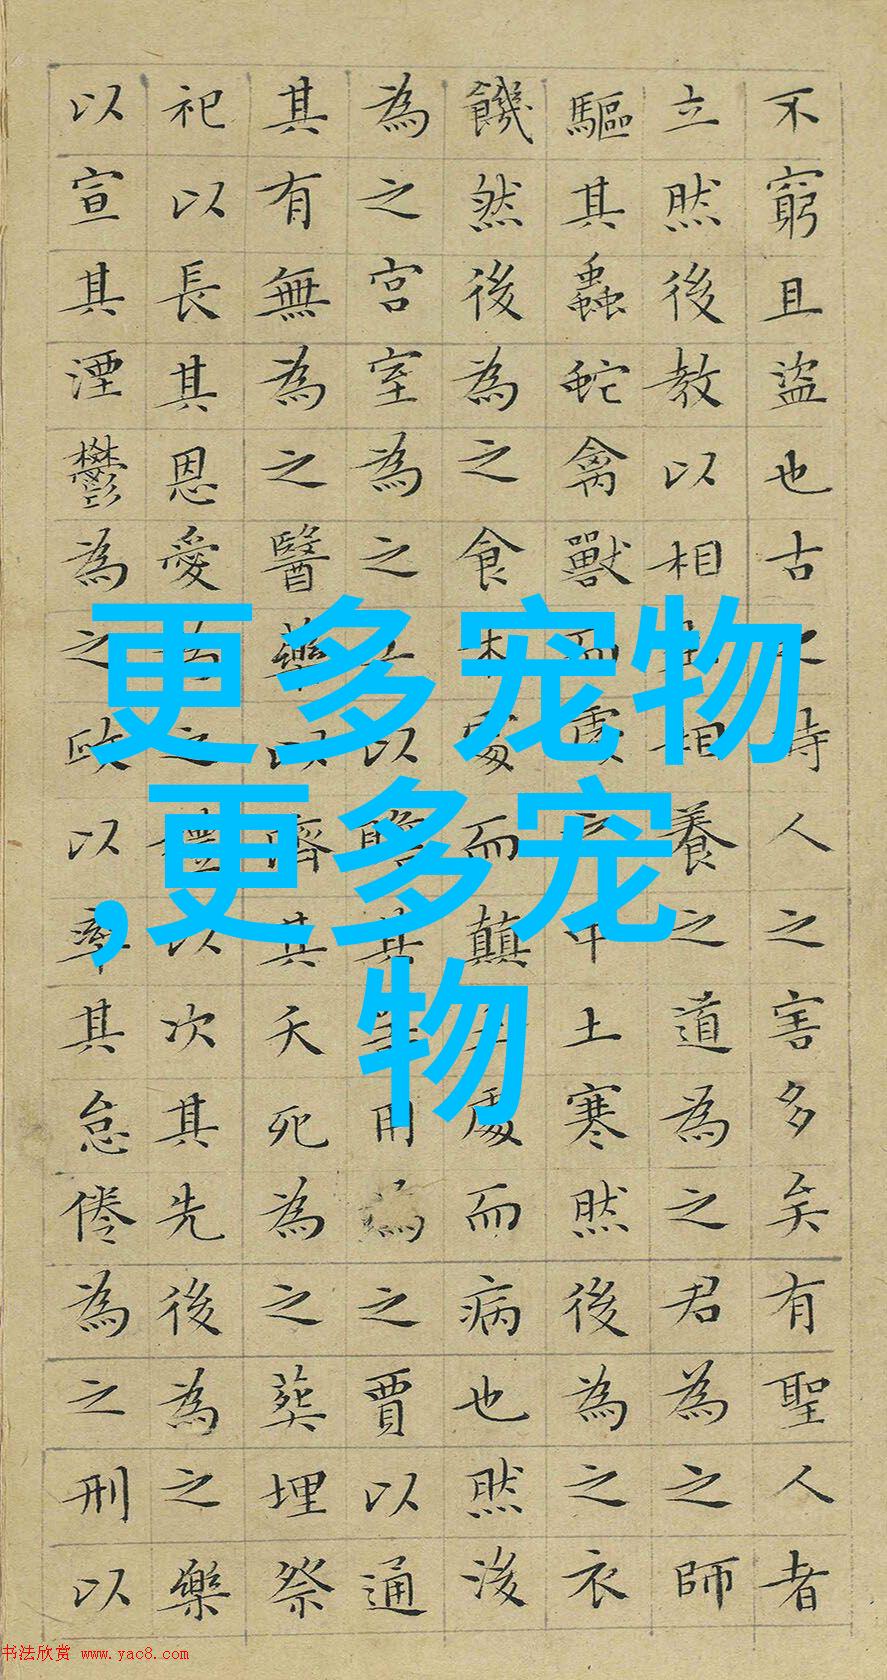 不窮且盜也古之時人之害多矣有聖人者
立然後教以相相養之道為之君為之師
驅其蟲蛇禽獸而處中土寒然後為之衣
饑然後為之食木處而顛土處而病也然後
為之宮室為之以贍其用為之賈以通
其有無為之醫藥以濟其夭死為之葬埋祭
祀以長其恩愛為之禮以次其先後為之樂
以宣其湮鬱為之政以率其怠倦為之刑以
更多宠物
,更多宠
物
书法欣赏 www.yac8.com